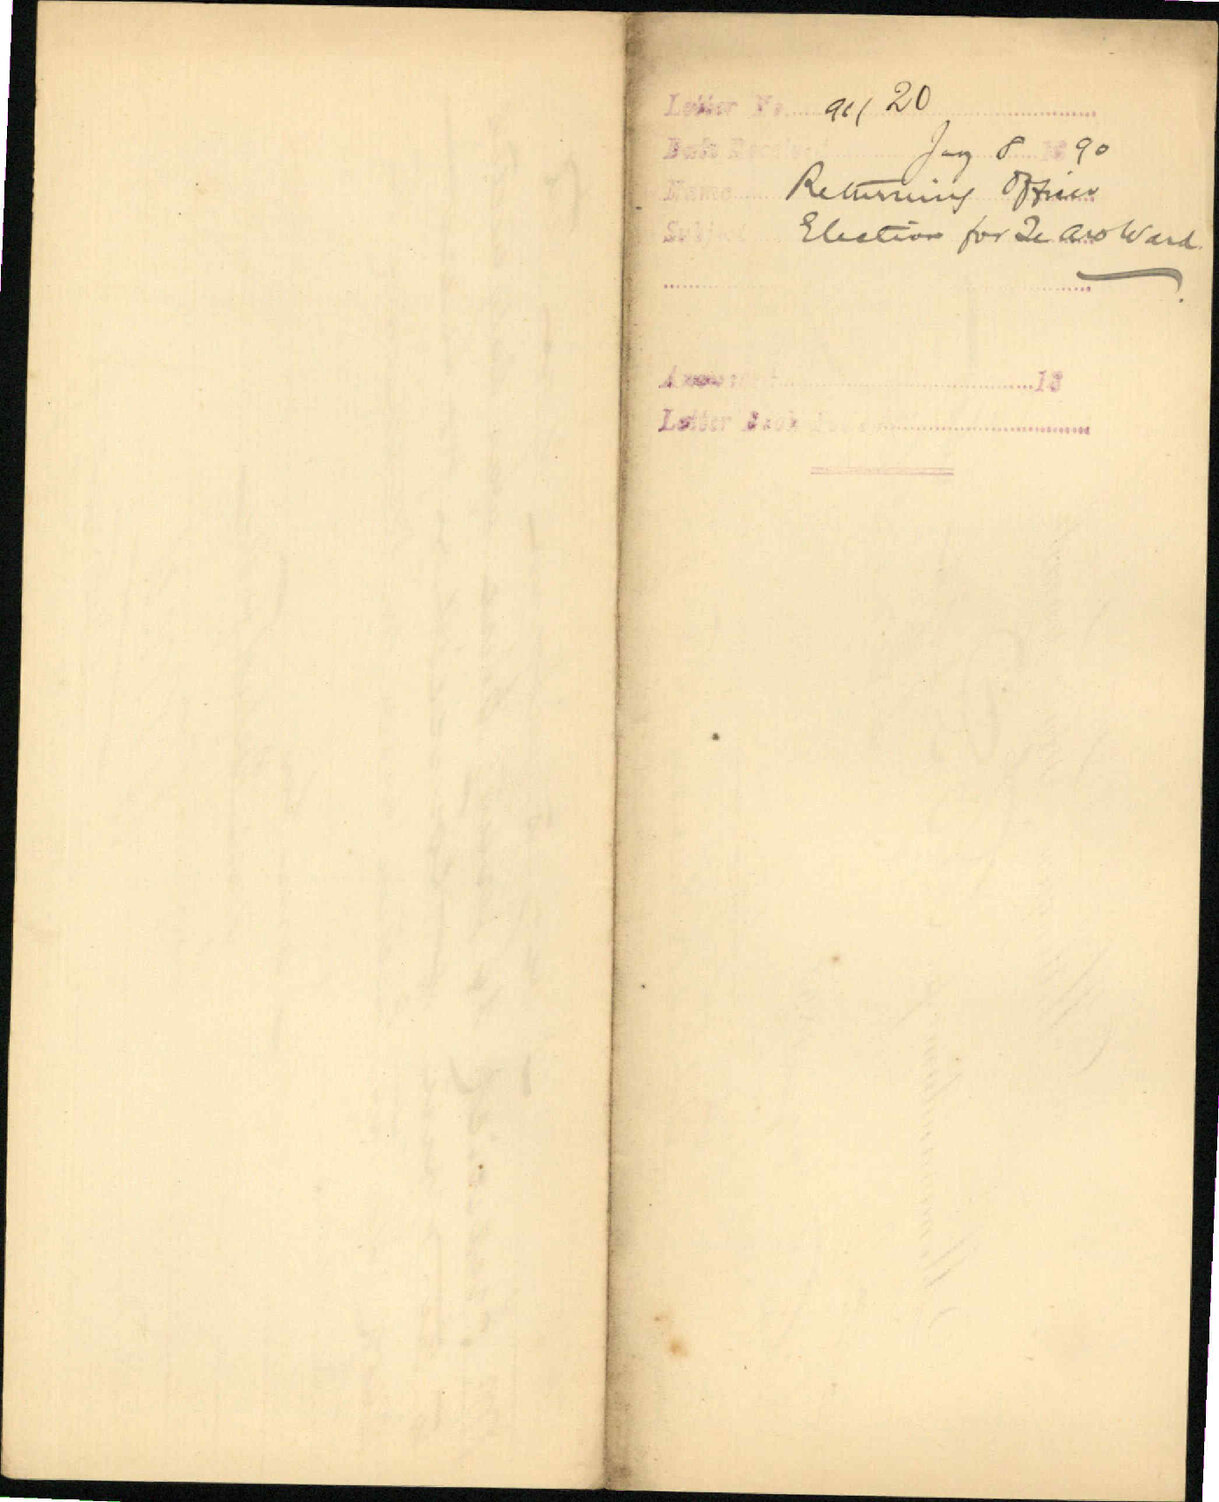 Letter No. 90/20
Date Received Jany 8 1890
Name Returning Officer
Subject Election for Te Aro Ward.
Answered 18
Letter Book